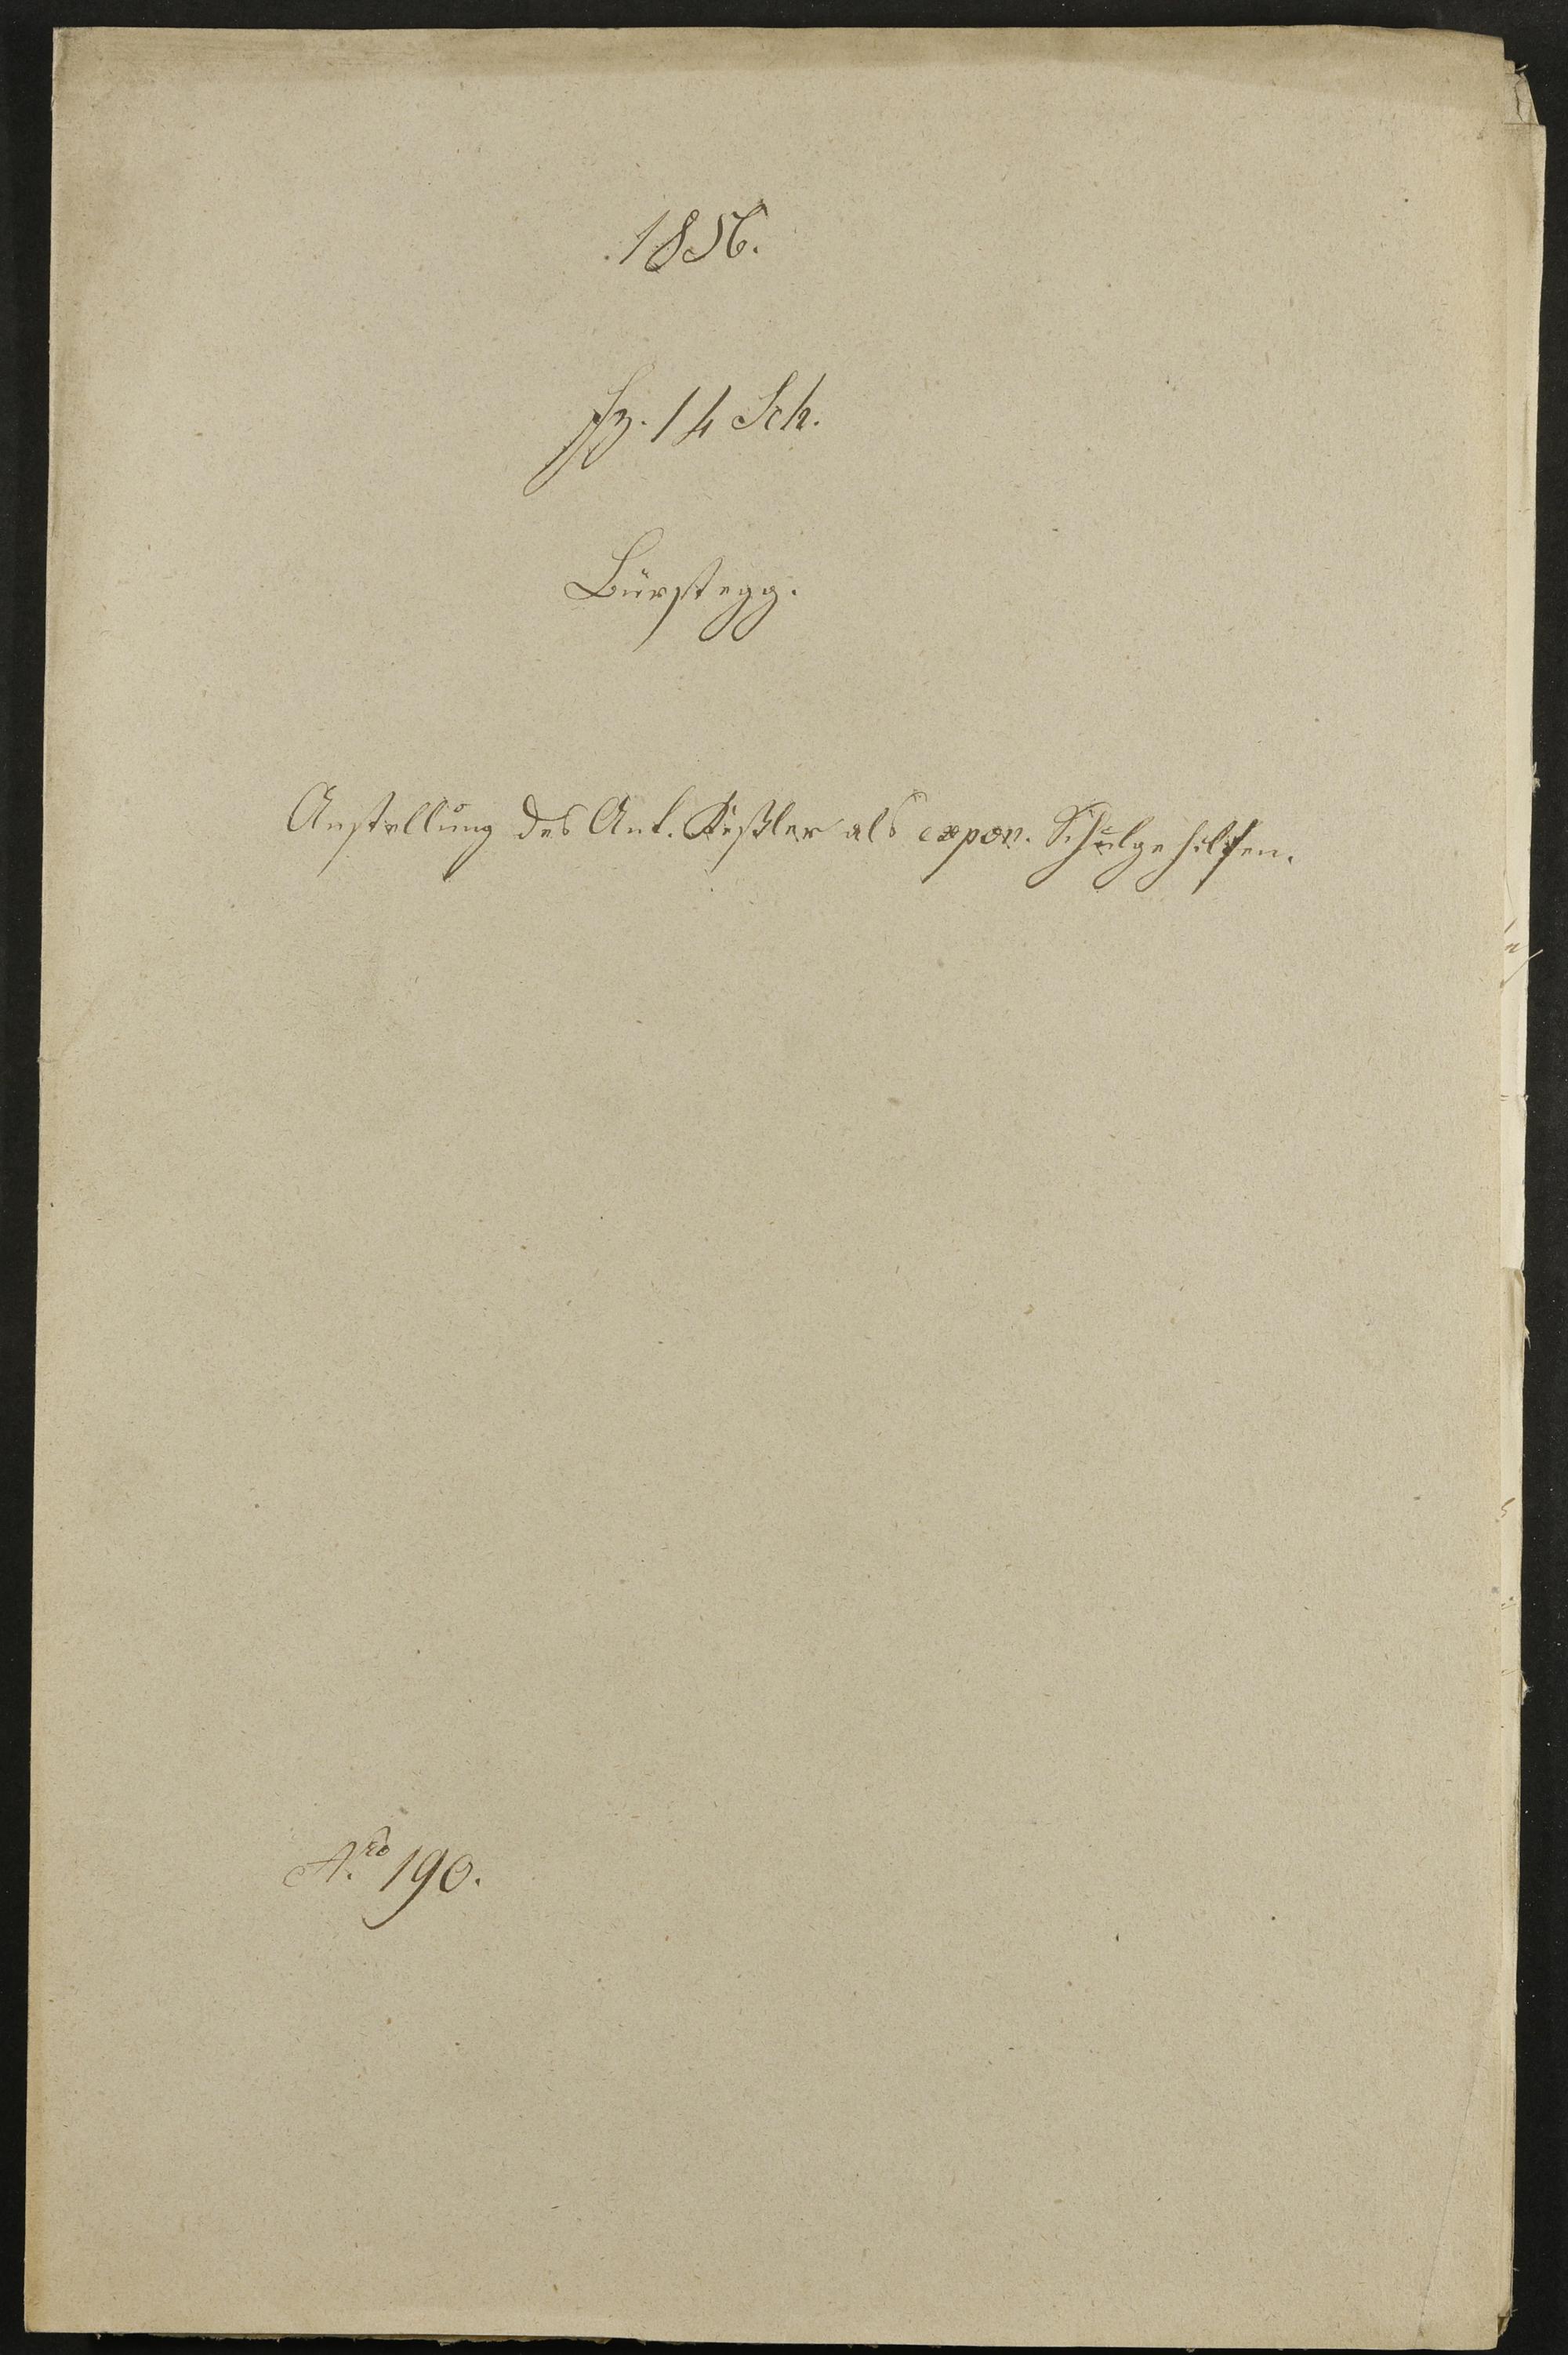 1856.
Fz. 14 Sch.
Bürstegg.
Anstellung des Ant. Keßler als expon. Schulgehilfen.
Nro 190.